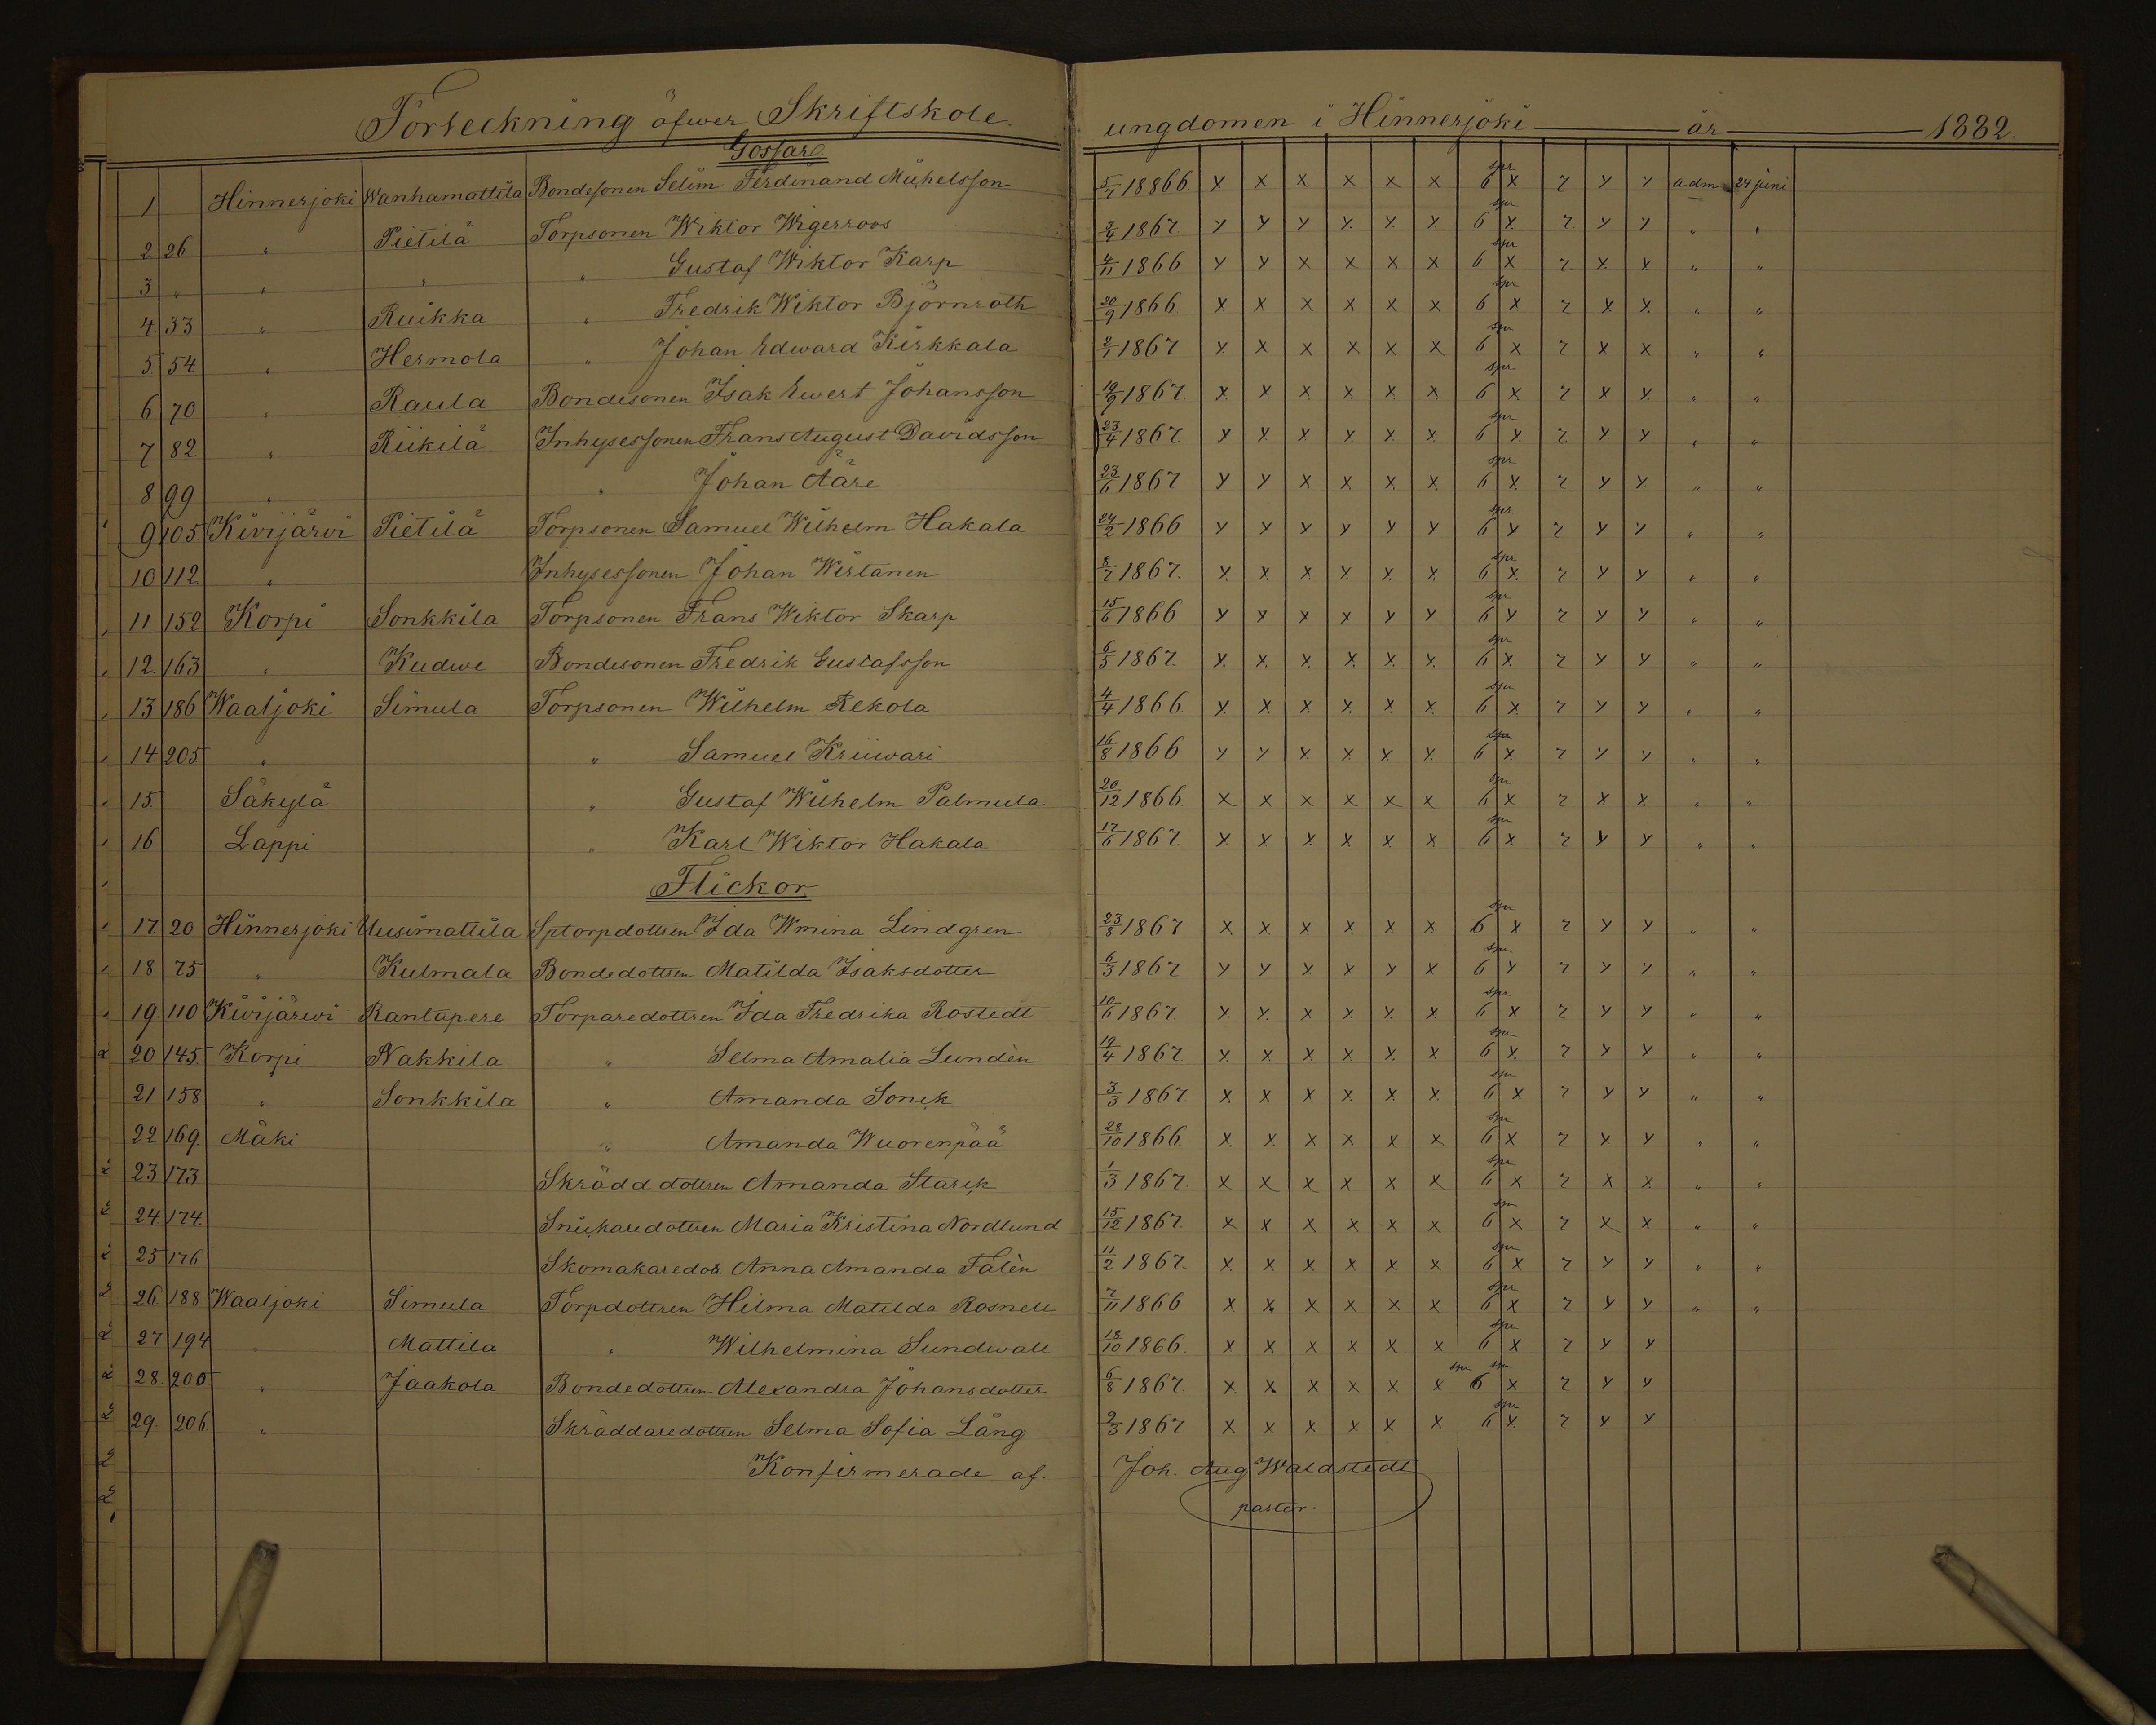 Förteckning öfwer Skriftskole. ungdomen i Hinnerjoki år 1882.
Gossar
1 Hinnerjoki Wanhamattila Bondesonen Selim Ferdinand Michelsson 5/7 18866 x x x x x x 6 spr x 7 x x adm 24 juni
2 26 " Pietilä Torpsonen Wiktor Wigerroos 3/4 1867 x x x x x x 6 spr x 7 x x " "
3 " " " " Gustaf Wiktor Karp 4/11 1866 x x x x x x 6 spr x 7 x x " "
4 33 " Ruikka " Fredrik Wiktor Björnroth 20/9 1866 x x x x x x 6 spr x 7 x x " "
5 54 " Hermola " Johan Edward Kirkkala 2/1 1867 x x x x x x 6 spr x 7 x x " "
6 70 " Raula Bondesonen Isak Ewert Johansson 19/9 1867. x x x x x x 6 spr x 7 x x " "
7 82 " Riikilä Inhysessonen Frans August Davidsson 23/4 1867 x x x x x x 6 spr x 7 x x " "
8 99 " " Johan Ääre 23/6 1867 x x x x x x 6 spr x 7 x x " "
9 105 Kivijärvi Pietilä Torpsonen Samuel Wilhelm Hakala 24/2 1866 x x x x x x 6 spr x 7 x x " "
10 112 " Inhysessonen Johan Wirtanen 8/7 1867. x x x x x x 6 spr x 7 x x " "
11 152 Korpi Sonkkila Torpsonen Frans Wiktor Skarp 15/6 1866 x x x x x x 6 spr x 7 x x " "
12. 163 " Kudwe Bondesonen Fredrik Gustafsson 6/5 1867. x x x x x x 6 spr x 7 x x " "
13 186 Waaljoki Simula Torpsonen Wilhelm Rekola 4/4 1866 x x x x x x 6 spr x 7 x x " "
14. 205 " " Samuel Kriiwari 16/8 1866 x x x x x x 6 spr x 7 x x " "
15 Säkylä " Gustaf Wilhelm Palmula 20/12 1866 x x x x x x 6 spr x 7 x x " "
16 Lappi " Karl Wiktor Hakala 17/6 1867. x x x x x x 6 spr x 7 x x " "
Flickor
17 20 Hinnerjoki Uusimattila Sptorpdottren Ida Wmina Lindgren 23/8 1867 x x x x x x 6 spr x 7 x x " "
18 75 " Kulmala Bondedottren Matilda Isaksdotter 6/3 1867 x x x x x x 6 spr x 7 x x " "
19. 110 Kivijärwi Rantapere Torparedottren Ida Fredrika Rostedt 10/6 1867 x x x x x x 6 spr x 7 x x " "
20 145. Korpi Nakkila " Selma Amalia Lundèn 19/4 1867 x x x x x x 6 spr x 7 x x " "
21 158 " Sonkkila " Amanda Sonck 3/3 1867. x x x x x x 6 spr x 7 x x " "
22 169. Mäki " Amanda Wuorenpää 28/10 1866. x x x x x x 6 spr x 7 x x " "
23 173 Skrädd dottren Amanda Starck 1/3 1867. x x x x x x 6 spr x 7 x x " "
24 174. Snickaredottren Maria Kristina Nordlund 15/12 1867. x x x x x x 6 spr x 7 x x " "
25 176 Skomakaredos Anna Amanda Falèn 11/2 1867. x x x x x x 6 spr x 7 x x " "
26. 188 Waaljoki Simula Torpdottren Hilma Matilda Rosnell 7/11 1866 x x x x x x 6 spr x 7 x x " "
27 194 " Mattila " Wilhelmina Sundwall 18/10 1866. x x x x x x 6 spr x 7 x x
28. 200 " Jaakola Bondedottren Alexandra Johansdotter 6/8 1867. x x x x x x spr 6 spr x 7 x x
29. 206 " Skräddaredottren Selma Sofia Lång 2/3 1867 x x x x x x 6 spr x 7 x x
Konfirmerade af. Joh. Aug Waldstedt
pastor.